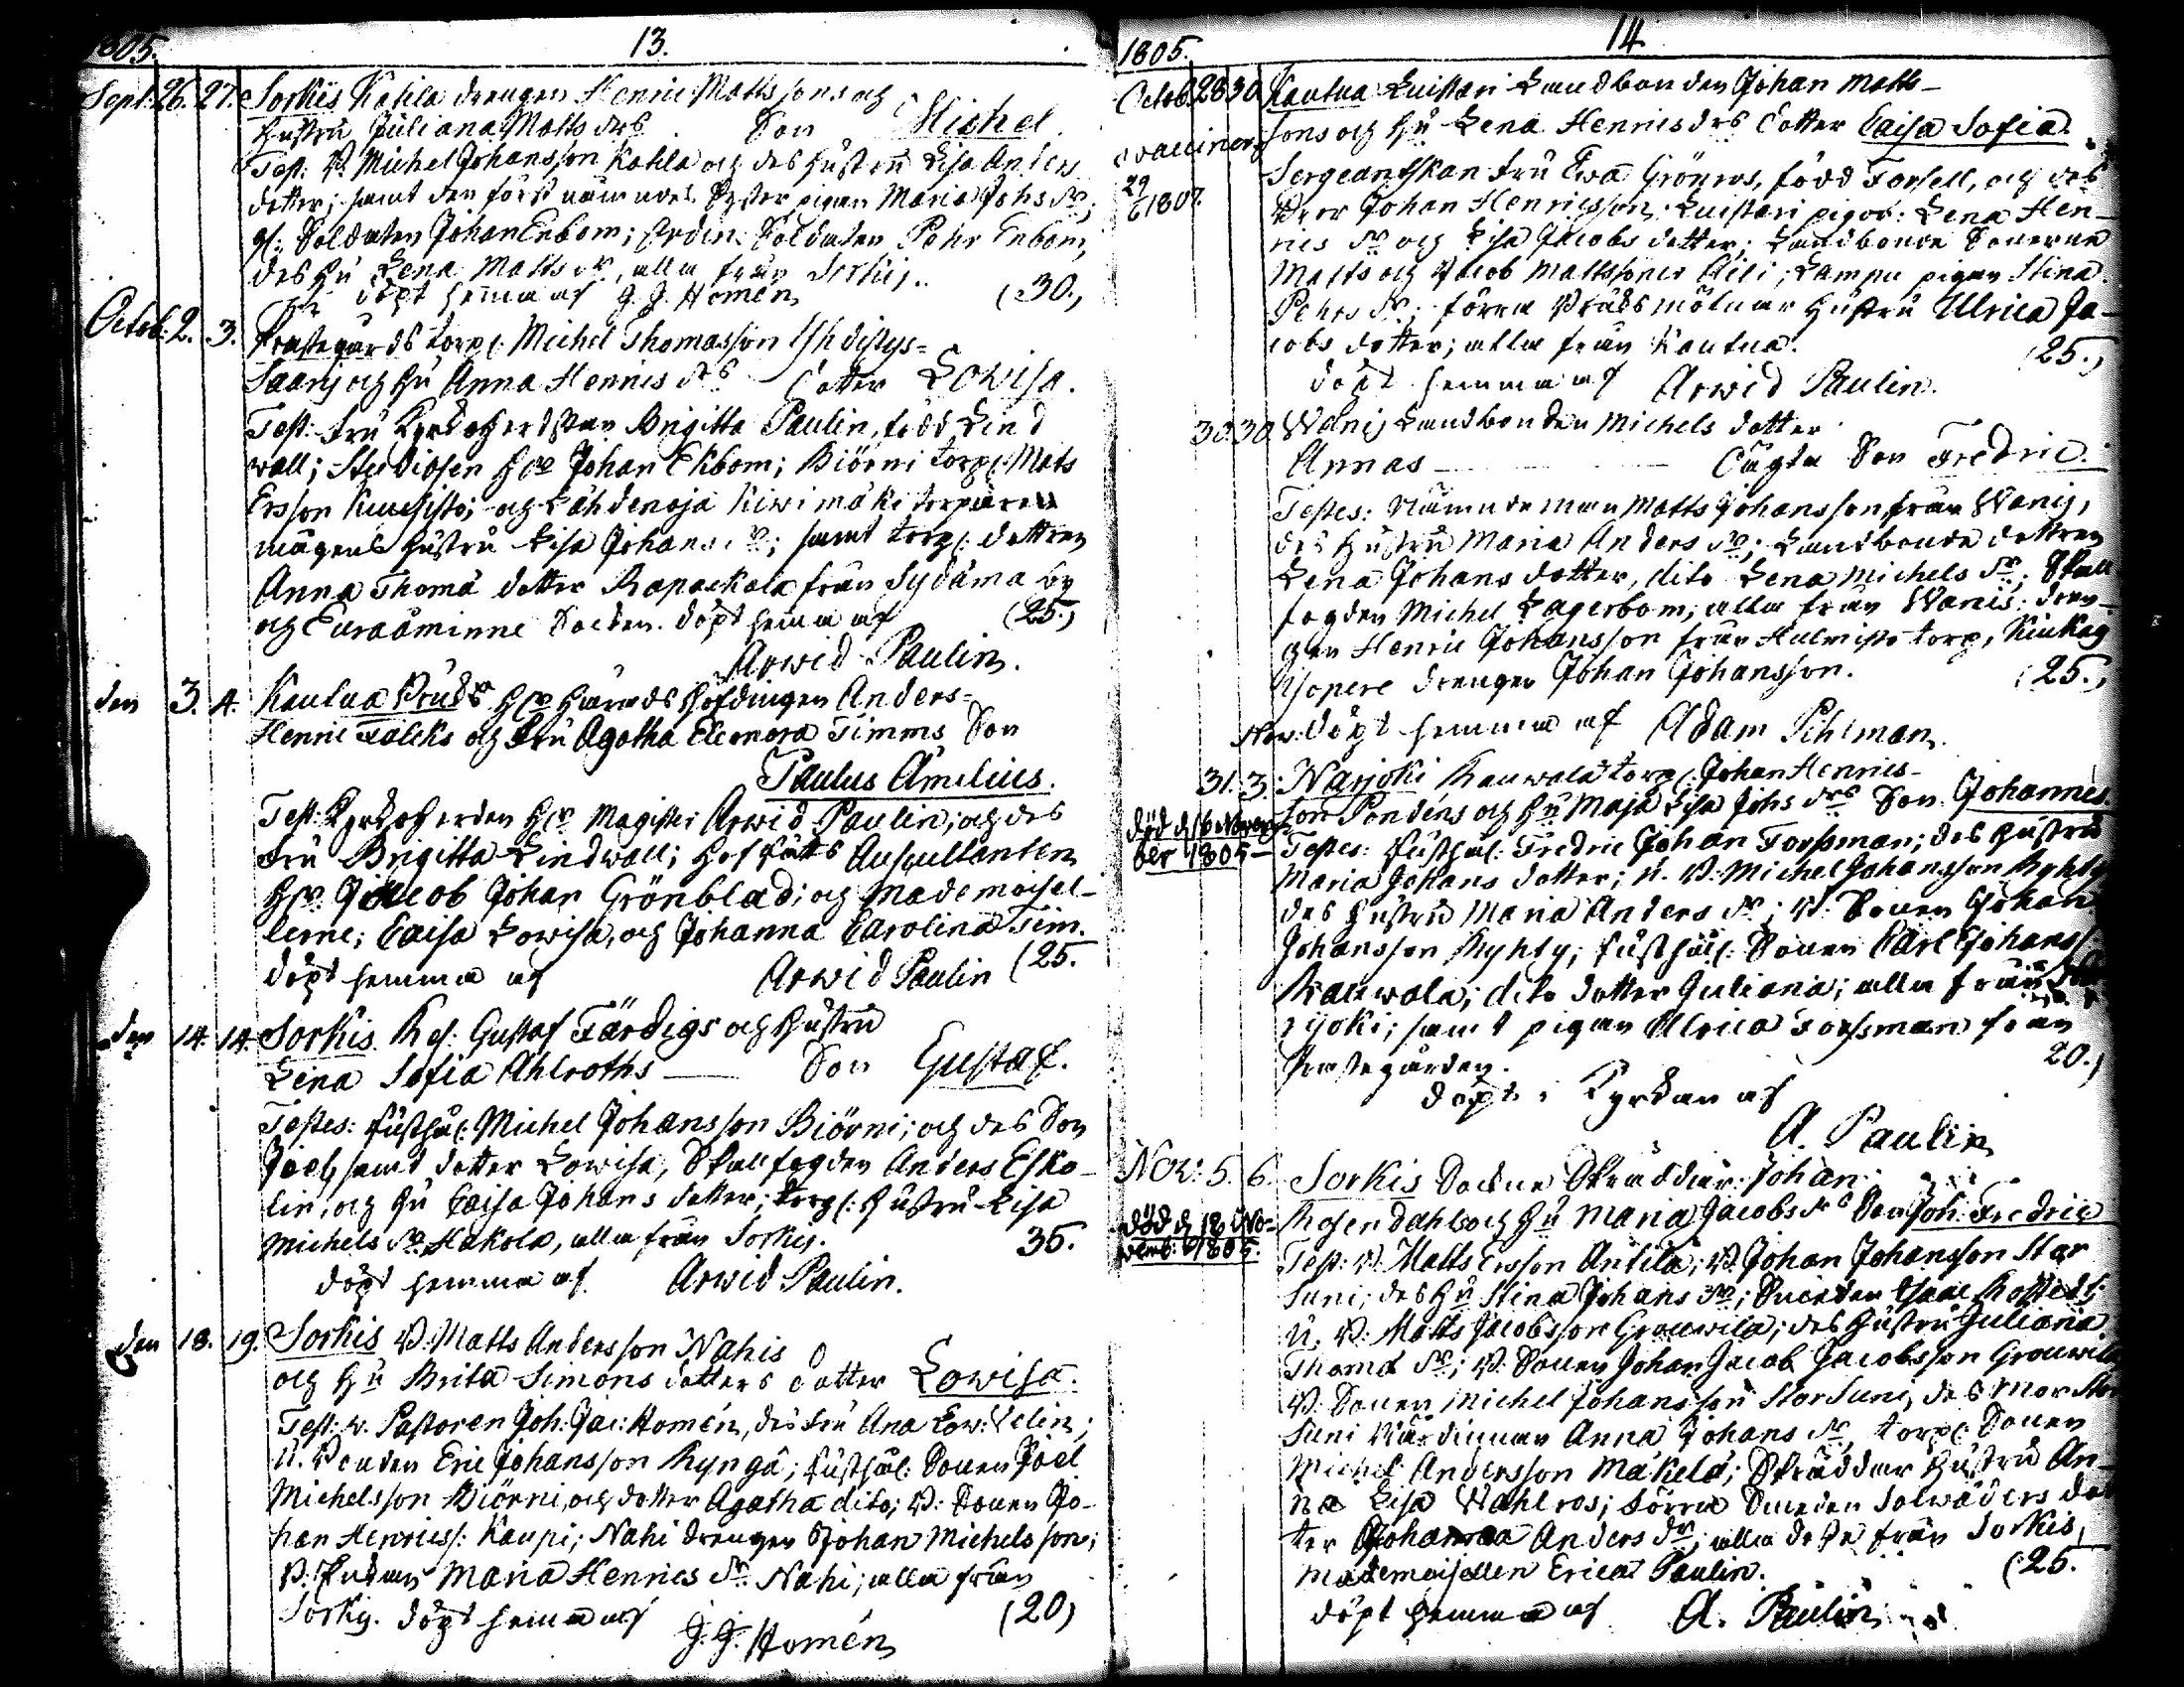 1805.
13.
Sept: 26. 27. Sorkis Kahla drengen Henric Mattssons och
hustru Juliana Matts drs Son Michel.
Test: B. Michel Johansson Kahla och des hustru Lisa Anders
dotter; samt den först nämndes Syster pigan Maria Johs dr;
gl: Soldaten Johan Enbom; ordin: Soldaten Pehr Enbom,
des hu Lena Matts dr, alla från Sorkis.
döpt hemma af J. J. Homén (30.)
Octob: 2. 3. Prästegårds torp: Michel Thomasson
Saari och hu Anna Henrics drs dotter Lowisa.
Test: Fru Kyrckoherdskan Brigitta Paulin, född Lind
wall; Studiosen Hr Johan Ekbom; Biörni torp: Mats
Ersson Kuusisto; och Lähdenoja Kiwimäki torparen
mågens hustru Lisa Johans dr; samt torp: dottren
Anna Thomä dotter Rapackala från Sydäma by
och Euraåminne Socken. döpt hemma af (25.)
Arwid Paulin.
den 3. 4. Kautua Bruks Hr Härads Höfdingen Anders
Henric Falcks och Fru Agatha Eleonora Timms Son
Paulus Æmilius.
Test: Kyrckoherden Hr Magister Arwid Paulin; och des
Fru Brigitta Lindwall; Hofrätts Auscultanten
Hr Jacob Johan Grönblad; och Mademoisel-
lerne; Caisa Lowisa, och Johanna Carolina Tim.
döpt hemma af Arwid Paulin (25.
den 14. 14. Sorkis Gustaf Färdigs och hustru
Lena Sofia Ahlroths Son Gustaf.
Testes: Rusthål: Michel Johansson Biörni; och des Son
Joel, samt dotter Lowisa, Skallfogden Anders Esko-
lin, och hu Caisa Johans dotter; torp: hustru Lisa
Michels dr Hakola, alla från Sorkis. 35.
döpt hemma af Arwid Paulin.
den 18. 19. Sorkis B. Matts Andersson Nahis
och hu Brita Simons dotters dotter Lowisa.
Test: v. Pastoren Joh: Jac: Homén, des Fru Ana Low: Velin;
U. Bonden Eric Johansson Kyngä; Rusthål: Sonen Joel
Michelsson Biörni, och dotter Agatha dito; B. Sonen Jo-
han Henricss: Kaupi; Nahi drengen Johan Michelsson;
B. Enkan Maria Henrics dr Nahi; alla från
Sorkis. döpt hemma af (20)
J. J. Homén
1805.
14.
Octob: 28 30. Kautua Luistari Landbonden Johan Matts-
sons och hu Lena Henrics drs dotter Caisa Sofia.
vaccinerad
29/6 1807.
Sergeantskan Fru Ewa Grönros, född Forsell, och des
Johan Henricsson; Luistari pigor: Lena Hen-
rics dr och Lisa Jacobs dotter; Landbonde Sönerne
Matts och Jacob Mattssöner Äili; Lampu pigan Stina
Pehrs dr; förra Bruks mölnar hustru Ulrica Ja-
cobs dotter; alla från Kautua. (25.)
döpt hemma af Arwid Paulin.
30. 30. Wanis Landbonden Michels dotter
Annas oägta Son Fredric.
Testes: Nämndeman Matts Johansson, från Wanis,
des hustru Maria Anders dr; Landbonde dottren
Lena Johans dotter, dito Lena Michels dr; Skall
fogden Michel Lagerbom; alla från Wanis: dren-
gen Henric Johansson från Hulmisto torp,
drengen Johan Johansson. (25.)
döpt hemma af Adam Pihlman.
Nov:
31. 3. Narjoki Kauwola torp: Johan Henrics-
son Pondens och hu Maja Lisa Johs drs Son Johannes.
död d. 16 Novem-
ber 1805
Testes: Rusthål: Fredric Johan Forssman; des hustru
Maria Johans dotter; U. B: Michel Johansson Kyhty
des hustru Maria Anders dr; B: Sonen Johan
Johansson Kyhty; Rusthål: Sonen Karl Johanss:
Kauwola; dito dotter Juliana; alla från
rijoki; samt pigan Ulrica Forssman från
Prästegården. 20.)
döpt i Kyrckan af
A. Paulin
Nov: 5. 6. Sorkis Sockne Skräddar: Johan
Rosendahls och hu Maria Jacobs drs Son Joh: Fredric
död d. 18 No-
vemb: 1805.
Test: B. Matts Ersson Antila; B. Johan Johansson Stor
Suni; des hu Stina Johans dr; Smeden Isaac
U. B: Matts Jacobsson Grouwila; des hustru Juliana
Thomä dr; B. Sonen Johan Jacob Jacobsson Grouwila
B. Sonen Michel Johansson Stor Suni, des Mor Stor
Suni Wärdinnan Anna Johans dr torp: Sonen
Michel Andersson Mäkelä; Skräddar hustru An-
na Lisa Wahlros; förra Smeden Solwäders dot
ter Johanna Anders dr; alla desse från Sorkis,
Mademoisellen Erica Paulin. (25.
döpt hemma af A. Paulin